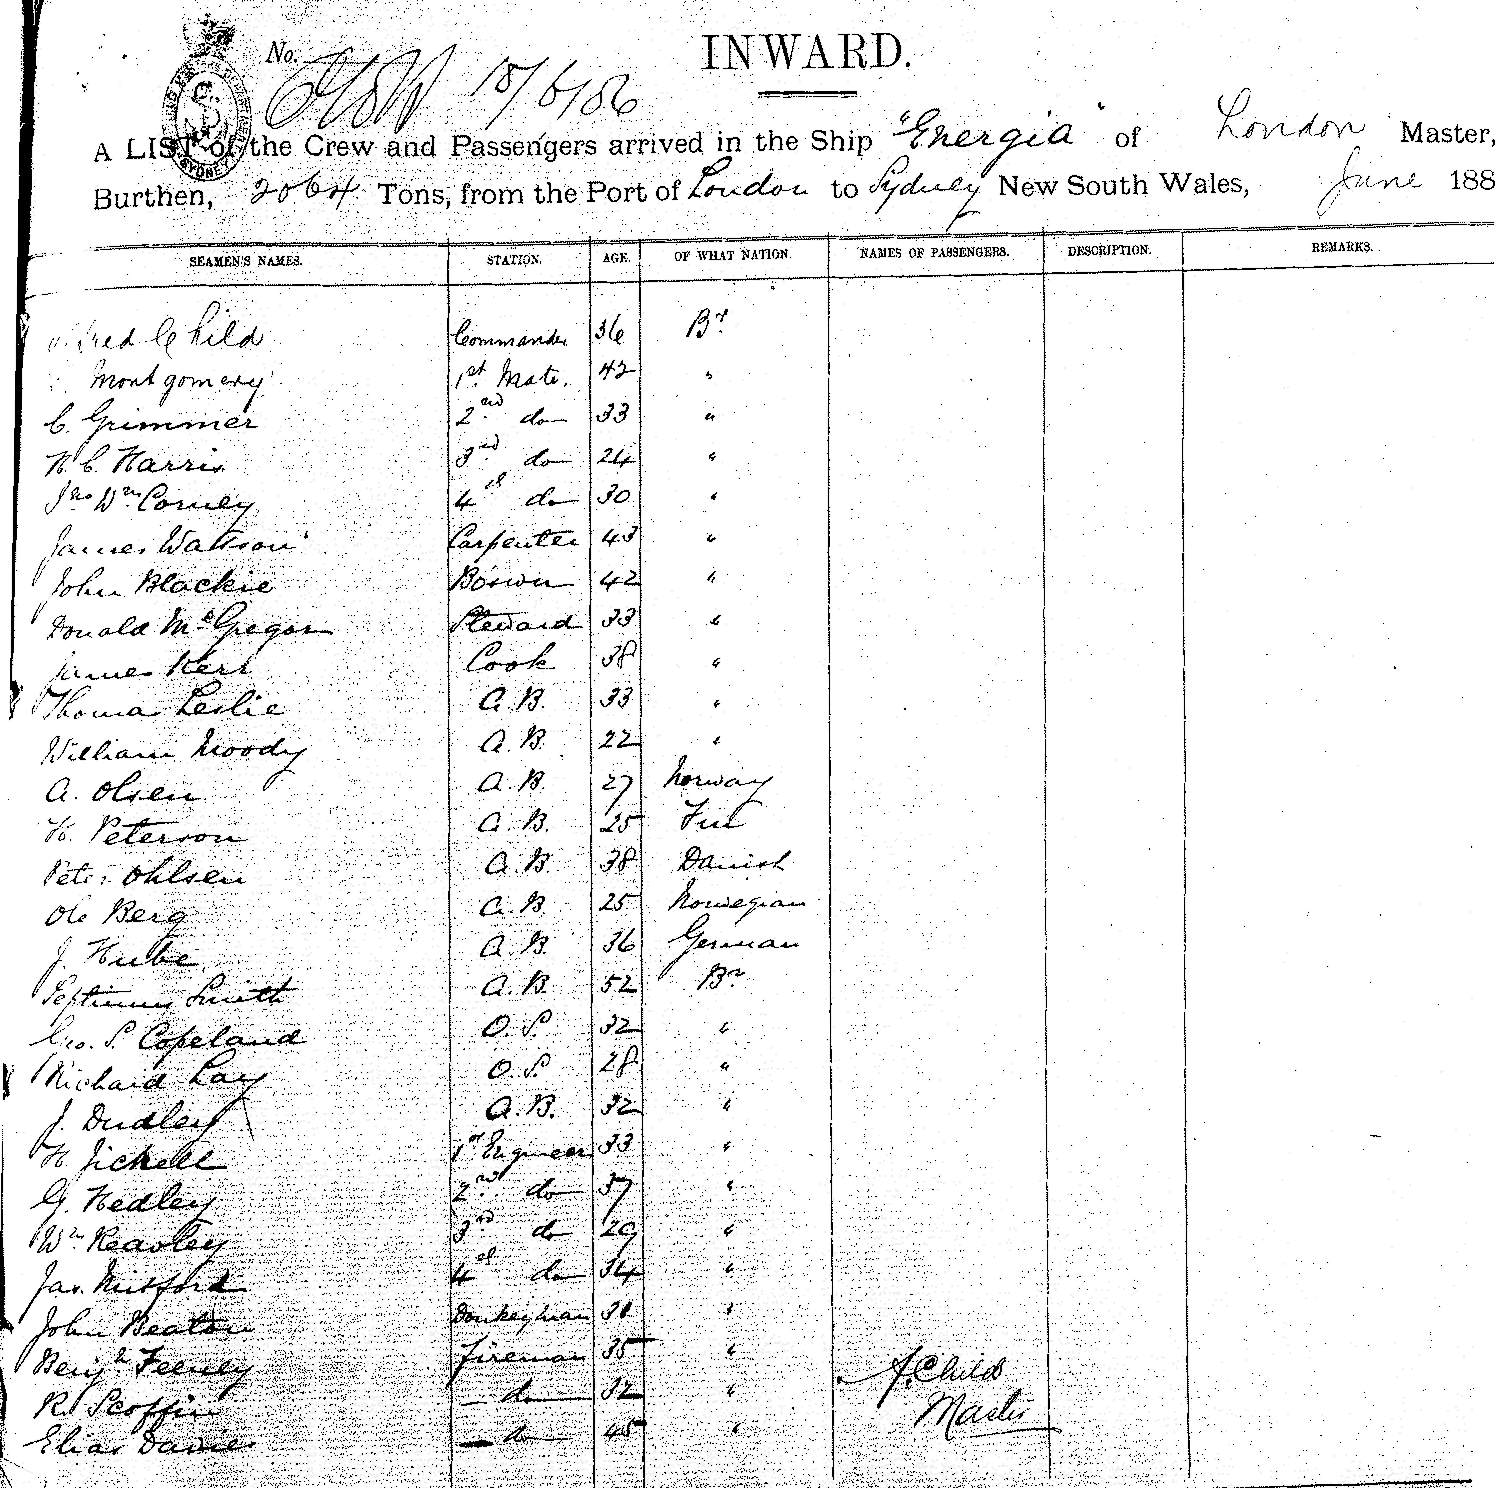 INWARD.
No. 18/6/86
SYDNEY
A LIST of the Crew and Passengers arrived in the Ship "Energia" of London Master,
Burthen, 2064 Tons, from the Port of London to Sydney New South Wales, June 188
SEAMEN'S NAMES. STATION. AGE. OF WHAT NATION. NAMES OF PASSENGERS. DESCRIPTION. REMARKS.
Child Commander 36 Br.
Montgomery 1st Mate. 42 "
C. Grimmer 2nd do 33 "
H. C. Harris 3rd do 24 "
Jno Wm Corney 4th do 30 "
James Watson Carpenter 43 "
John Blackie Boswn 42 "
Donald McGregor Steward 33 "
James Kerr Cook 38 "
Thomas Leslie A.B. 33 "
William Moody A.B. 22 "
A. Olsen A.B. 27 Norway
H. Peterson A.B. 25 Fin
Peter Ohlsen A.B. 38 Danish
Ole Berg A.B. 25 Norwegian
J. Hube A.B. 36 German
Septimus Smith A.B. 52 Br.
Geo. S. Copeland O.S. 32 "
Richard Lay O.S. 28 "
J. Dudley A.B. 32 "
H. Jickell 1st Engineer 33 "
G. Hedley 2nd do 37 "
Wm Keasley 3rd do 29 "
Jas. Mitford 4th do 34 "
John Beaton Donkeyman 31 "
Benjn Feeney Fireman 35 "
R. Scoffin do 32 "
Elias Davies do 45 "
A. Child
Master